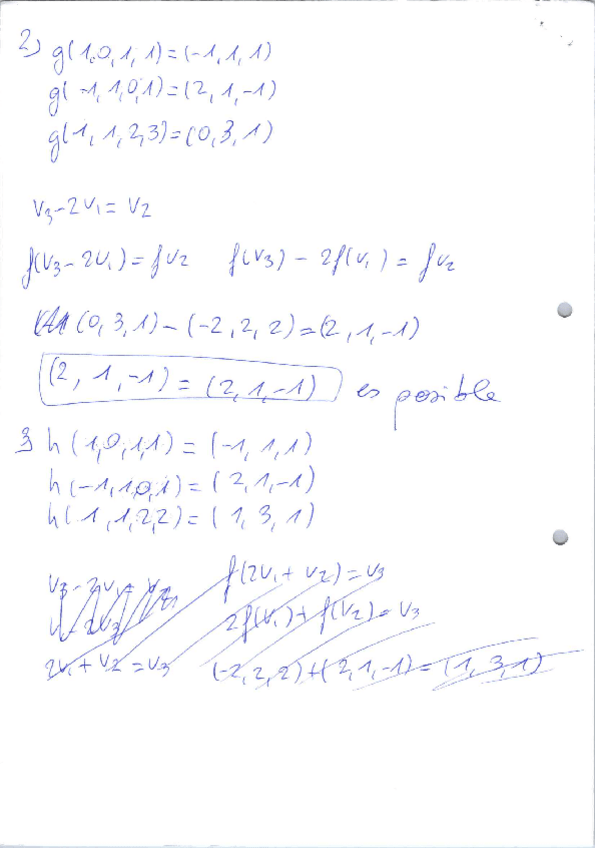 2) g(1,0,1,1)=(-1,1,1)
g(-1,1,0,1)=(2,1,-1)
g(1,1,2,3)=(0,3,1)
v₃-2v₁= v₂
f(v₃-2v₁)=fv₂ f(v₃)-2f(v₁)=fv₂
(0,3,1)-(-2,2,2)=(2,1,-1)
(2,1,-1)=(2,1,-1) es posible
3 h(1,0,1,1)=(-1,1,1)
h(-1,1,0,1)=(2,1,-1)
h(1,1,2,2)=(1,3,1)
f(2v₁+v₂)=v₃
2f(v₁)+f(v₂)=v₃
2v₁+v₂=v₃ (-2,2,2)+(2,1,-1)=(1,3,1)